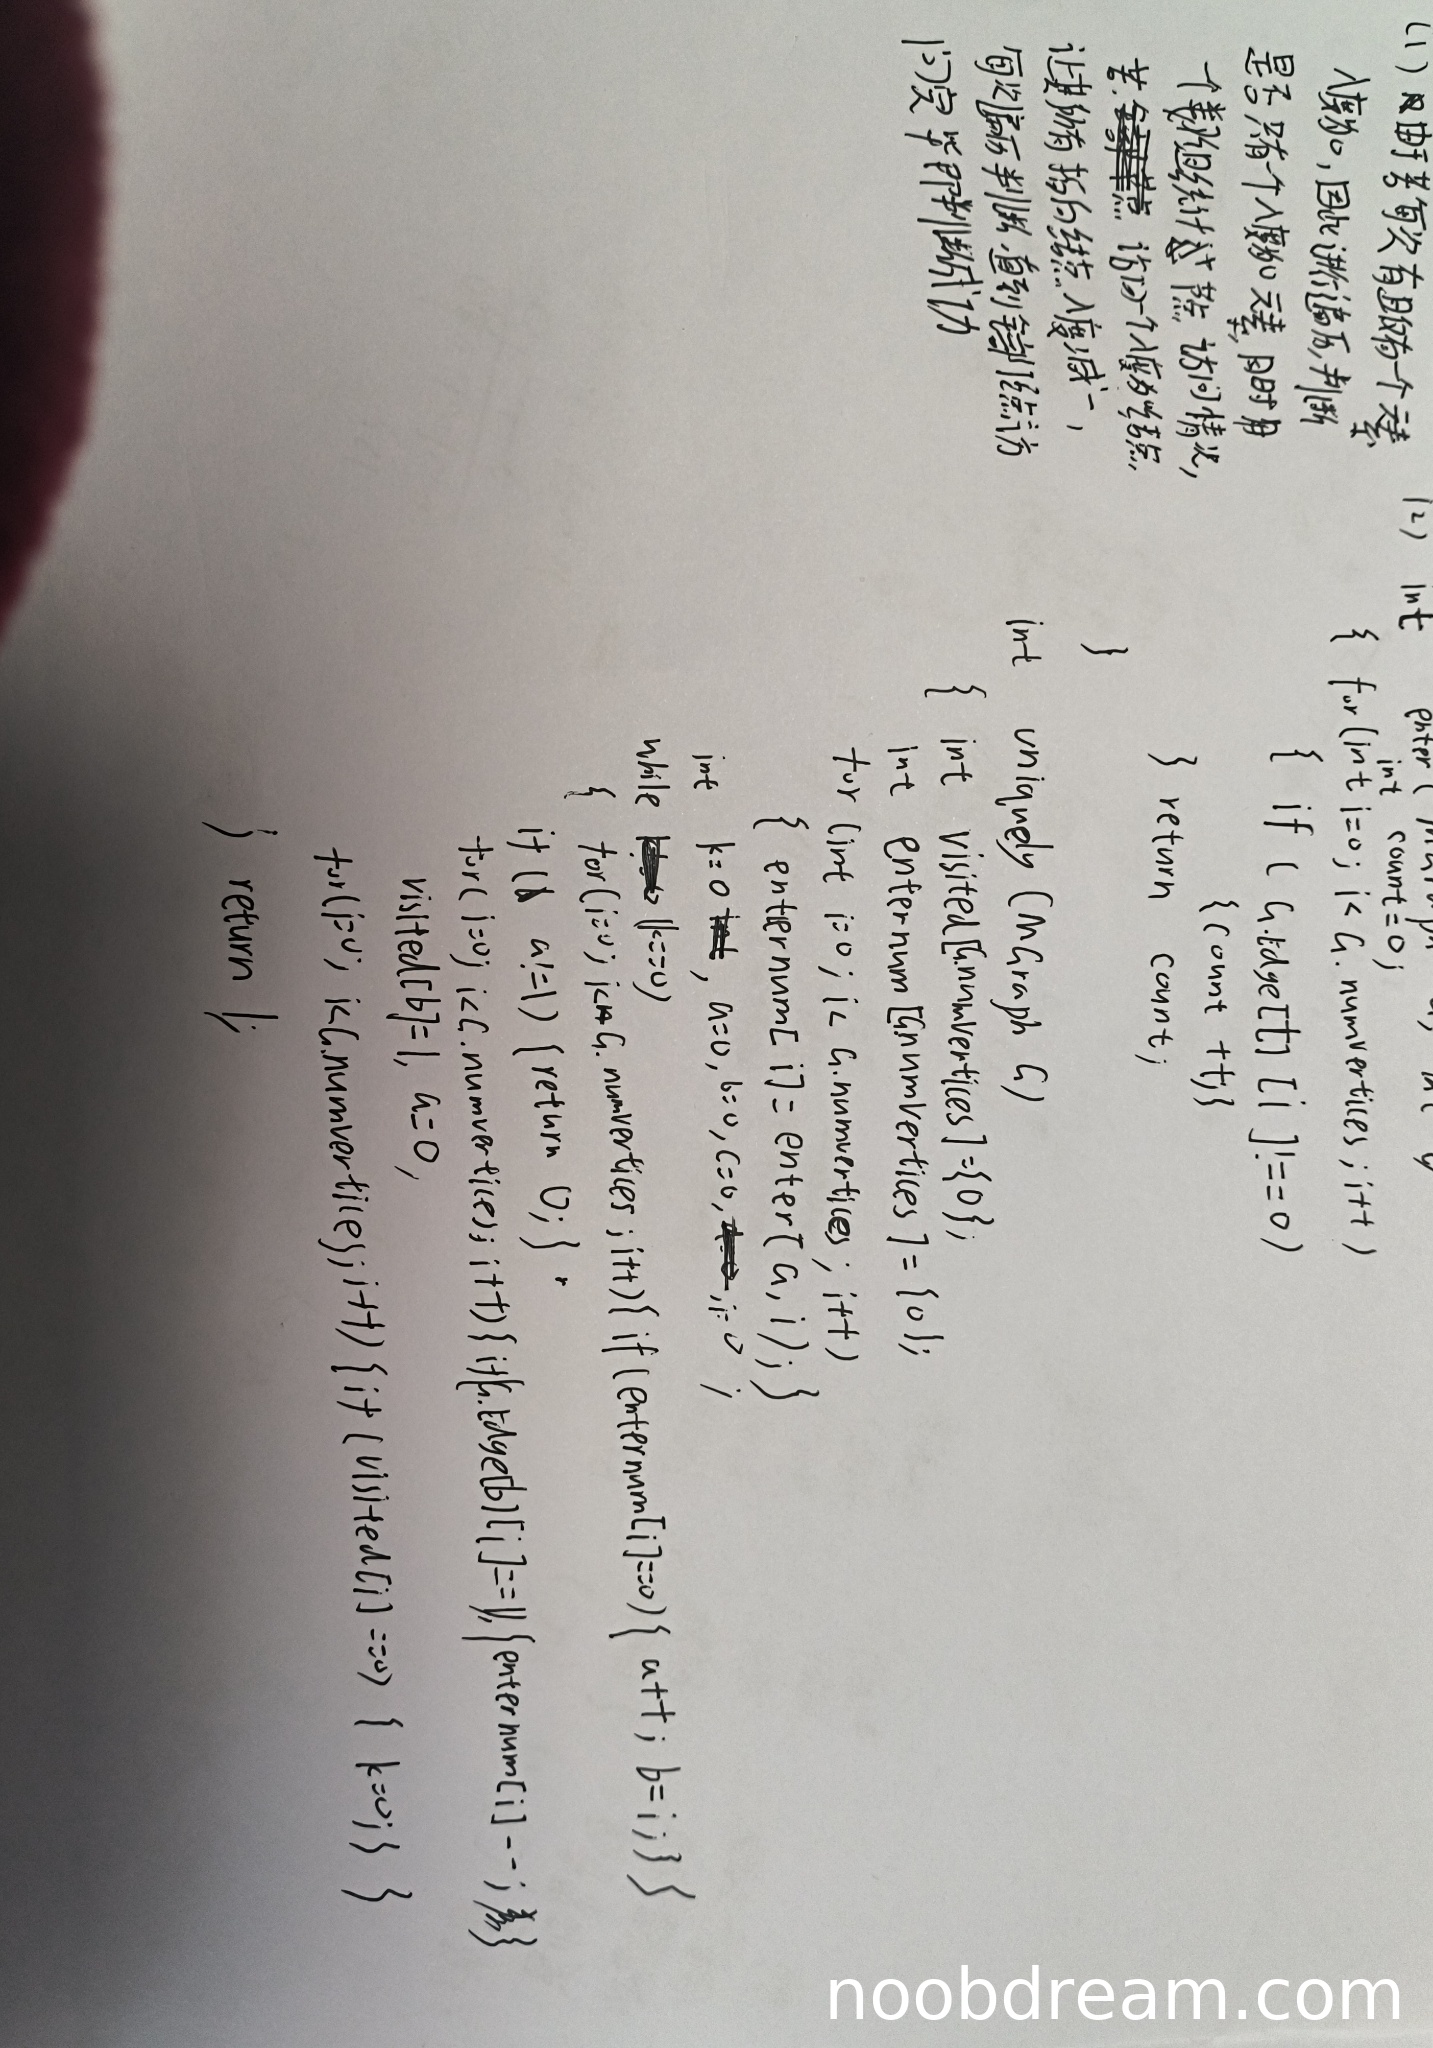 (1) 由于若每次有且仅有一个元素
入度为0,因此进行遍历,判断
是否只有一个入度为0元素,同时用
一个数组统计过节点访问情况,
若 访问一个入度为0结点,
让其所有指向结点入度减一,
每次循环判断,直到全部结点访
问完毕即判断成功
(2) int enter(
int count=0;
{ for(int i=0; i<G.numvertices; i++)
{ if(G.Edge[t][i]!==0)
{count++;}
} return count;
}
int uniquely (MGraph G)
{ int visited[G.numvertices]={0};
int enternum[G.numvertices]={0};
for(int i=0; i<G.numvertices; i++)
{ enternum[i]=enter(G,i); }
int k=0, a=0, b=0, c=0, i=0;
while (k==0)
{ for(i=0; i<G.numvertices; i++){if(enternum[i]==0){a++; b=i;}}
if(a!=1){return 0;}
for(i=0; i<G.numvertices; i++){if(G.Edge[b][i]==1){enternum[i]--;}}
visited[b]=1, a=0,
for(i=0; i<G.numvertices; i++){if(visited[i]==0){k=0;}}
} return 1;
noobdream.com